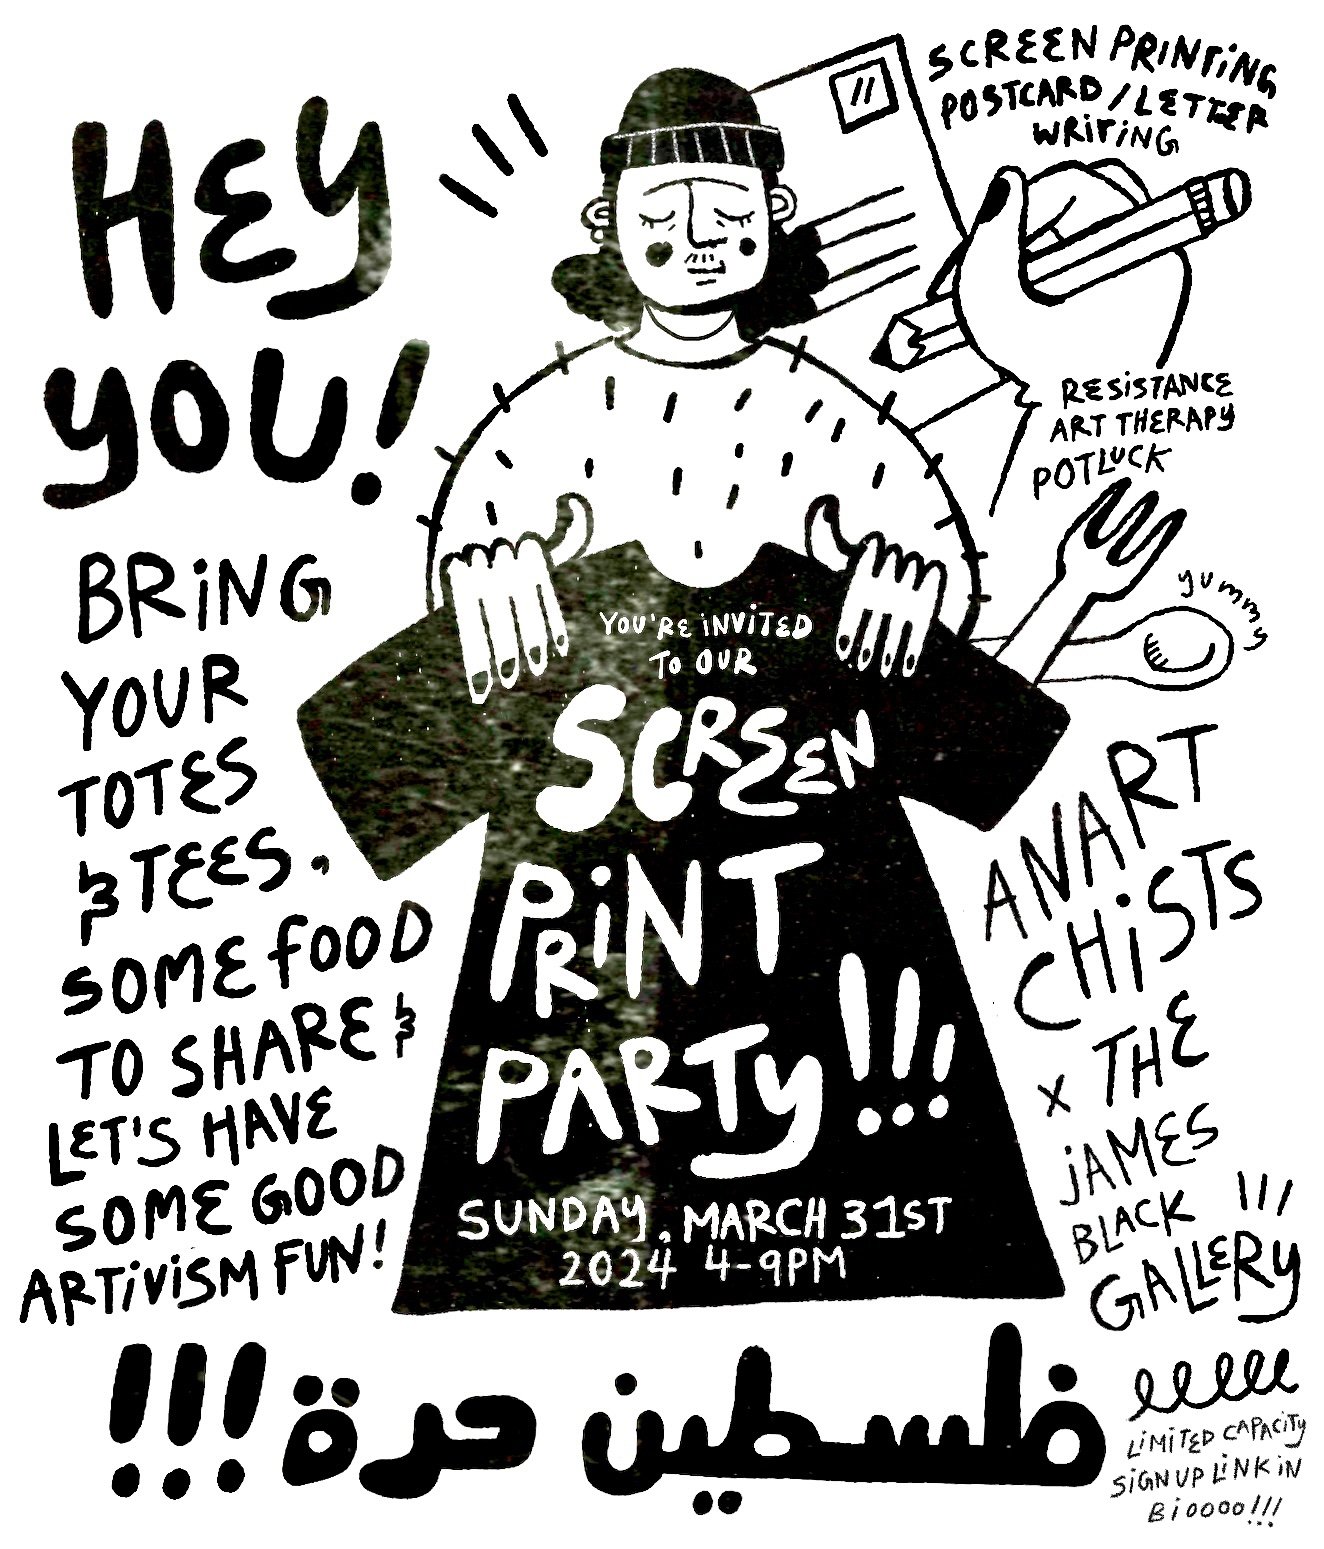 HEY
YOU!
BRiNG
YOUR
TOTES
& TEES,
SOME FOOD
TO SHARE &
LET'S HAVE
SOME GOOD
ARTiViSM FUN!
SCREEN PRiNTiNG
POSTCARD / LETTER
WRiTiNG
RESiSTANCE
ART THERAPY
POTLUCK
yummy
YOU'RE iNViTED
TO OUR
SCREEN
PRiNT
PARTy!!!
SUNDAY, MARCH 31ST
2024 4-9PM
ANART
CHiSTS
x THE
jAMES
BLACK
GALLERy
فلسطين حرة !!!
LiMiTED CAPACiTY
SiGN UP LiNK iN
Bioooo!!!